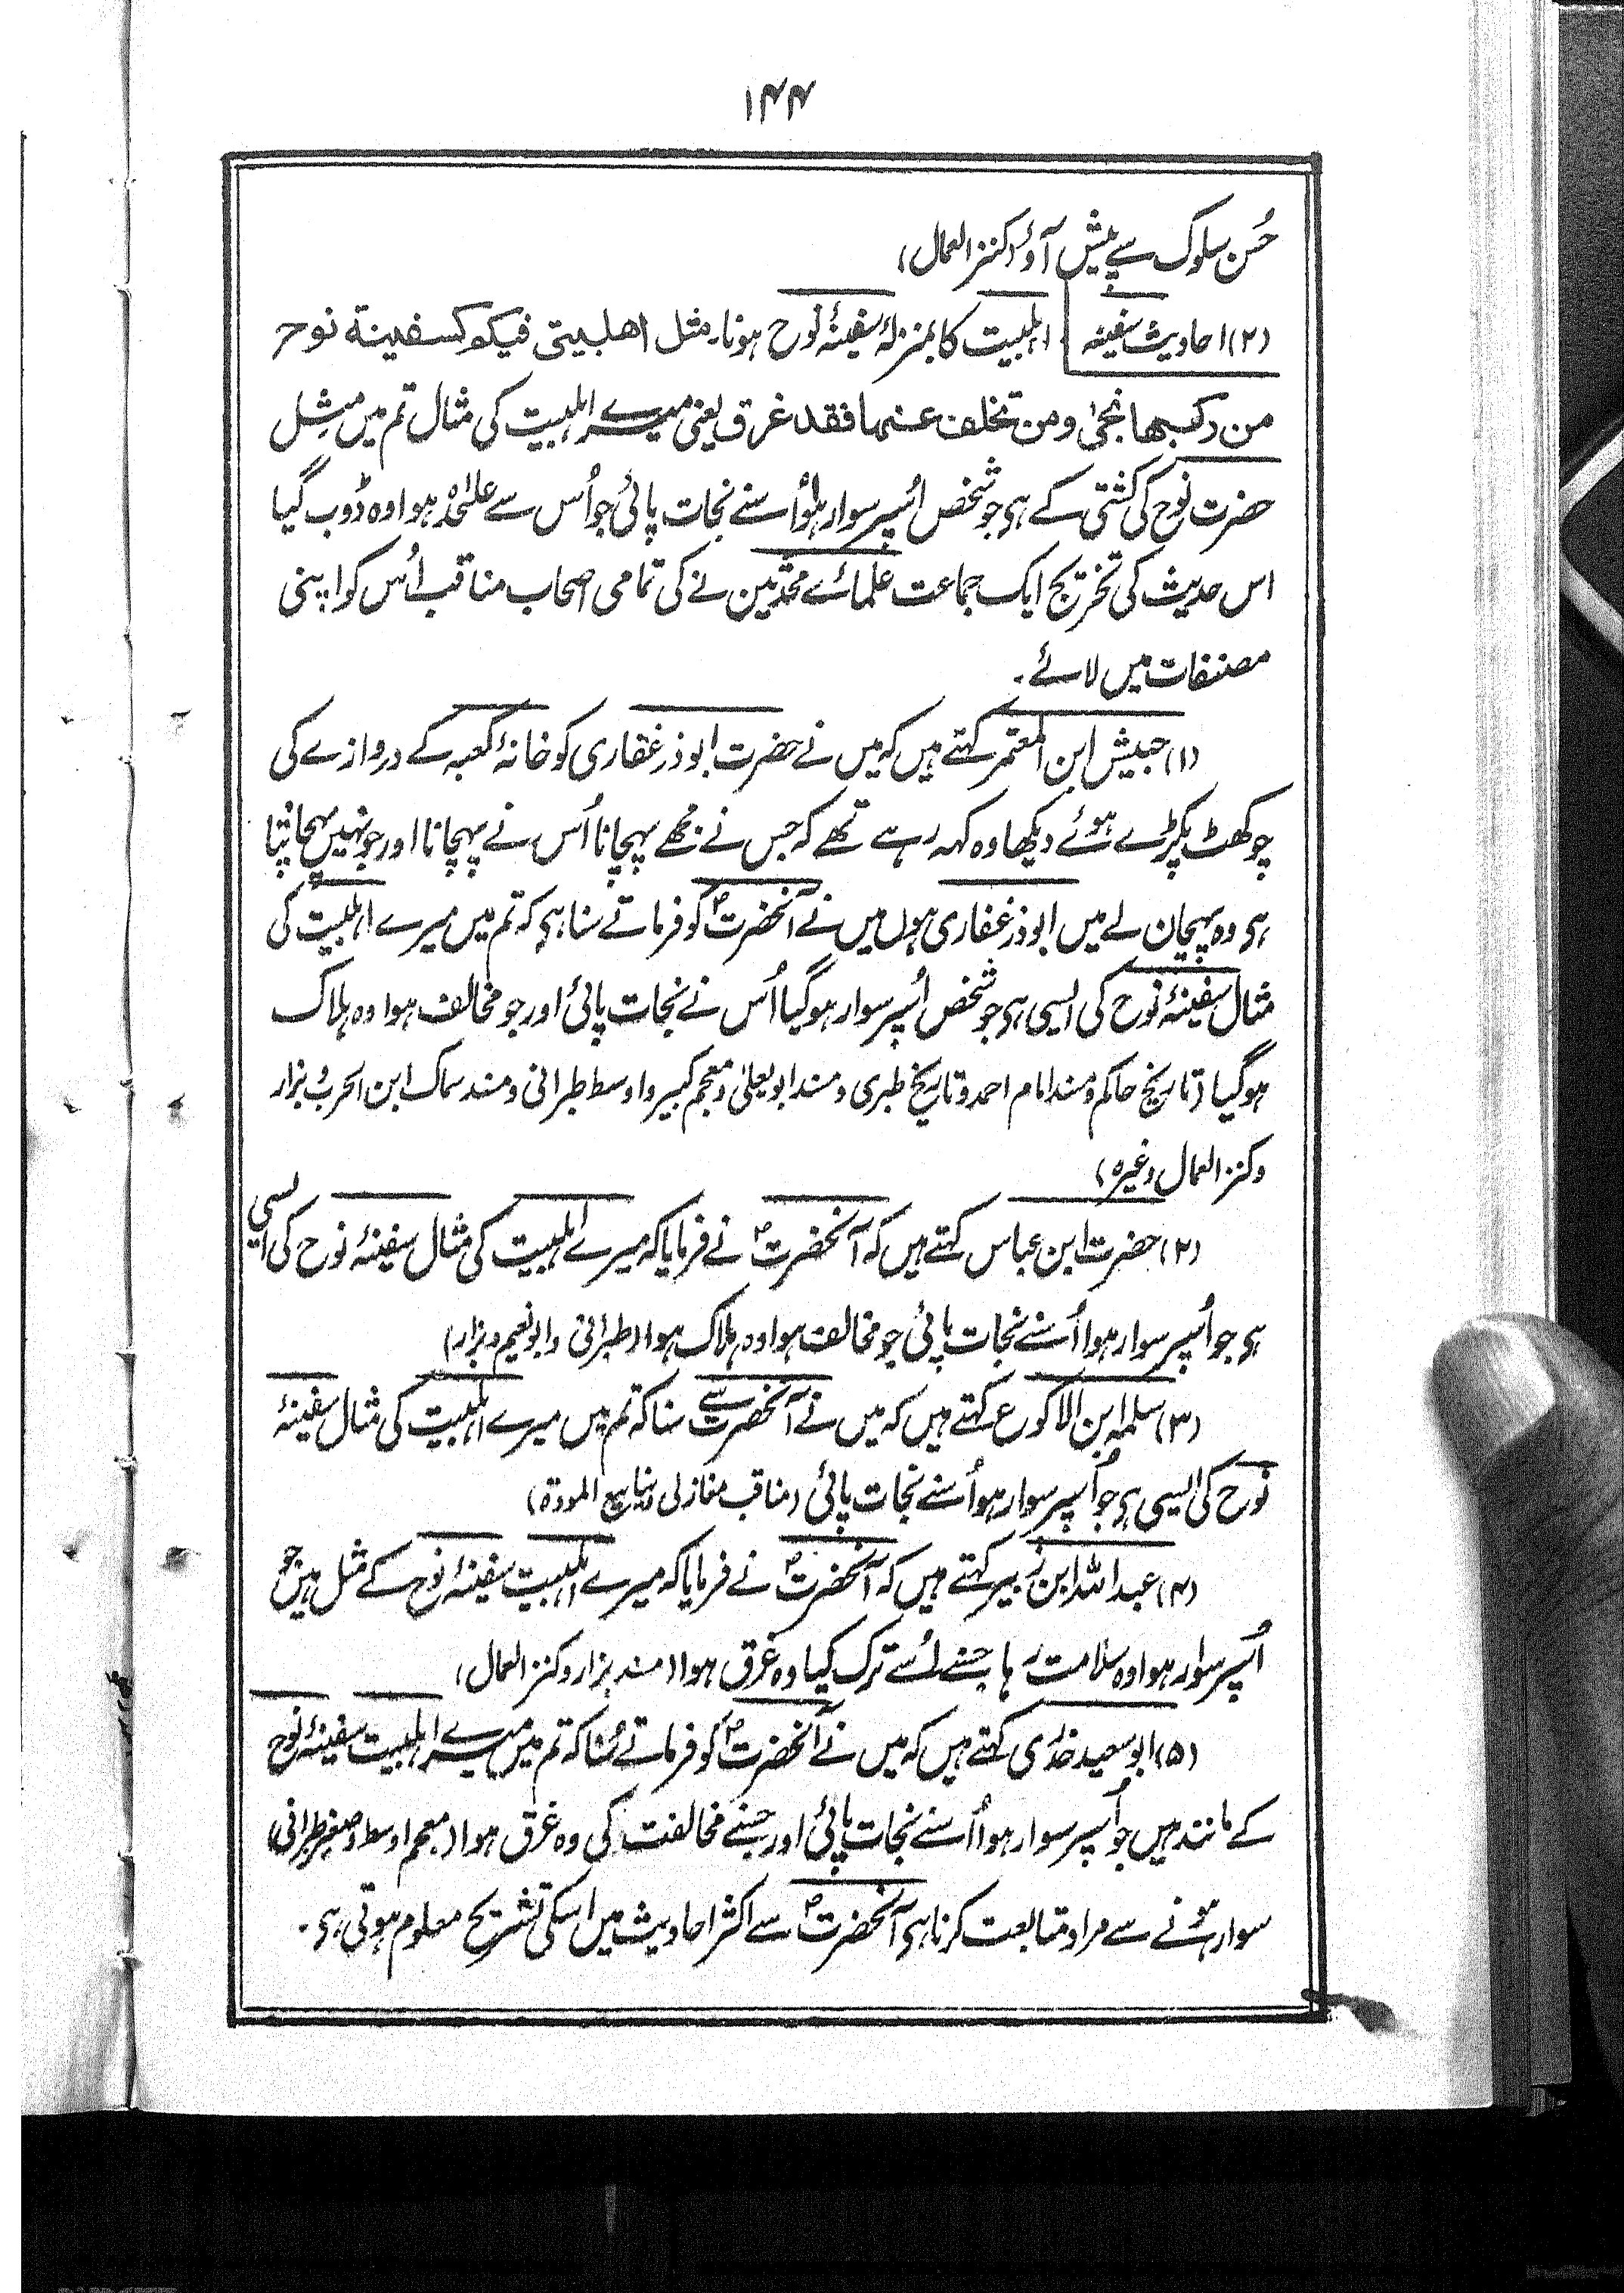 ۱۴۴
حُسن سلوک سے پیش آؤ (کنز العمال)
(۲) احادیث سفینہ اہلبیت کا بمنزلۂ سفینۂ نوح ہونا۔ مثل اهلبيتی فيكم كسفينة نوح
من ركبها نجیٰ ومن تخلف عنها فقد غرق یعنی میرے اہلبیت کی مثال تم میں مثِل
حضرت نوح کی کشتی کے ہی جو شخص اُسپر سوار ہوا اُسنے نجات پائی جو اُس سے علٰحدہ ہوا وہ ڈوب گیا
اس حدیث کی تخریج ایک جماعت علمائے محدثین نے کی تمامی اصحاب مناقب اُس کو اپنی
مصنفات میں لائے۔
(۱) حبیش ابن المعتمر کہتے ہیں کہ میں نے حضرت ابوذر غفاری کو خانۂ کعبہ کے دروازے کی
چوکھٹ پکڑے ہوئے دیکھا وہ کہہ رہے تھے کہ جس نے مجھے پہچانا اُس نے پہچانا اور جو نہیں پہچانتا
ہی وہ پہچان لے میں ابوذر غفاری ہوں میں نے آنحضرتؐ کو فرماتے سنا ہی کہ تم میں میرے اہلبیت کی
مثال سفینۂ نوح کی ایسی ہی جو شخص اُسپر سوار ہوگیا اُس نے نجات پائی اور جو مخالف ہوا وہ ہلاک
ہوگیا (تاریخ حاکم و مسند امام احمد و تاریخ طبری و مسند ابو یعلیٰ و معجم کبیر و اوسط طبرانی و مسند سماک ابن الحرب و بزار
وکنز العمال وغیرہ)
(۲) حضرت ابن عباس کہتے ہیں کہ آنحضرتؐ نے فرمایا کہ میرے اہلبیت کی مثال سفینۂ نوح کی ایسی
ہی جو اُسپر سوار ہوا اُسنے نجات پائی جو مخالف ہوا وہ ہلاک ہوا (طبرانی و ابو نعیم و بزار)
(۳) سلمہ ابن الاکورع کہتے ہیں کہ میں نے آنحضرت سے سنا کہ تم میں میرے اہلبیت کی مثال سفینۂ
نوح کی ایسی ہی جو اُسپر سوار ہوا اُسنے نجات پائی (مناقب مغازلی و ینابیع المودة)
(۴) عبد اللہ ابن زبیر کہتے ہیں کہ آنحضرتؐ نے فرمایا کہ میرے اہلبیت سفینۂ نوح کے مثل ہیں جو
اُسپر سوار ہوا وہ سلامت رہا جسنے اُسے ترک کیا وہ غرق ہوا (مسند بزار و کنز العمال)
(۵) ابو سعید خدری کہتے ہیں کہ میں نے آنحضرتؐ کو فرماتے سُنا کہ تم میں میرے اہلبیت سفینۂ نوح
کے مانند ہیں جو اُسپر سوار ہوا اُسنے نجات پائی اور جسنے مخالفت کی وہ غرق ہوا (معجم اوسط و صغیر طبرانی)
سوار ہونے سے مراد متابعت کرنا ہی آنحضرتؐ سے اکثر احادیث میں اسکی تشریح معلوم ہوتی ہی۔